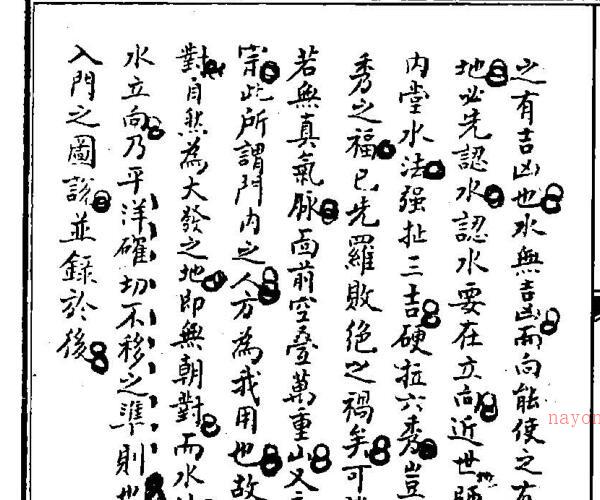 之有吉凶也水無吉凶而向能使之有
地必先認水認水要在立向近世師
內堂水法强扯三吉硬拉六秀豈
秀之福已先羅敗絕之禍矣可
若無真氣脉面前空疊萬重山又
崇此所謂門內之人方為我用也故
對自然為大發之地即無朝對而水
水立向乃平洋確切不移之準則也
入門之圖說並錄於後
nayon